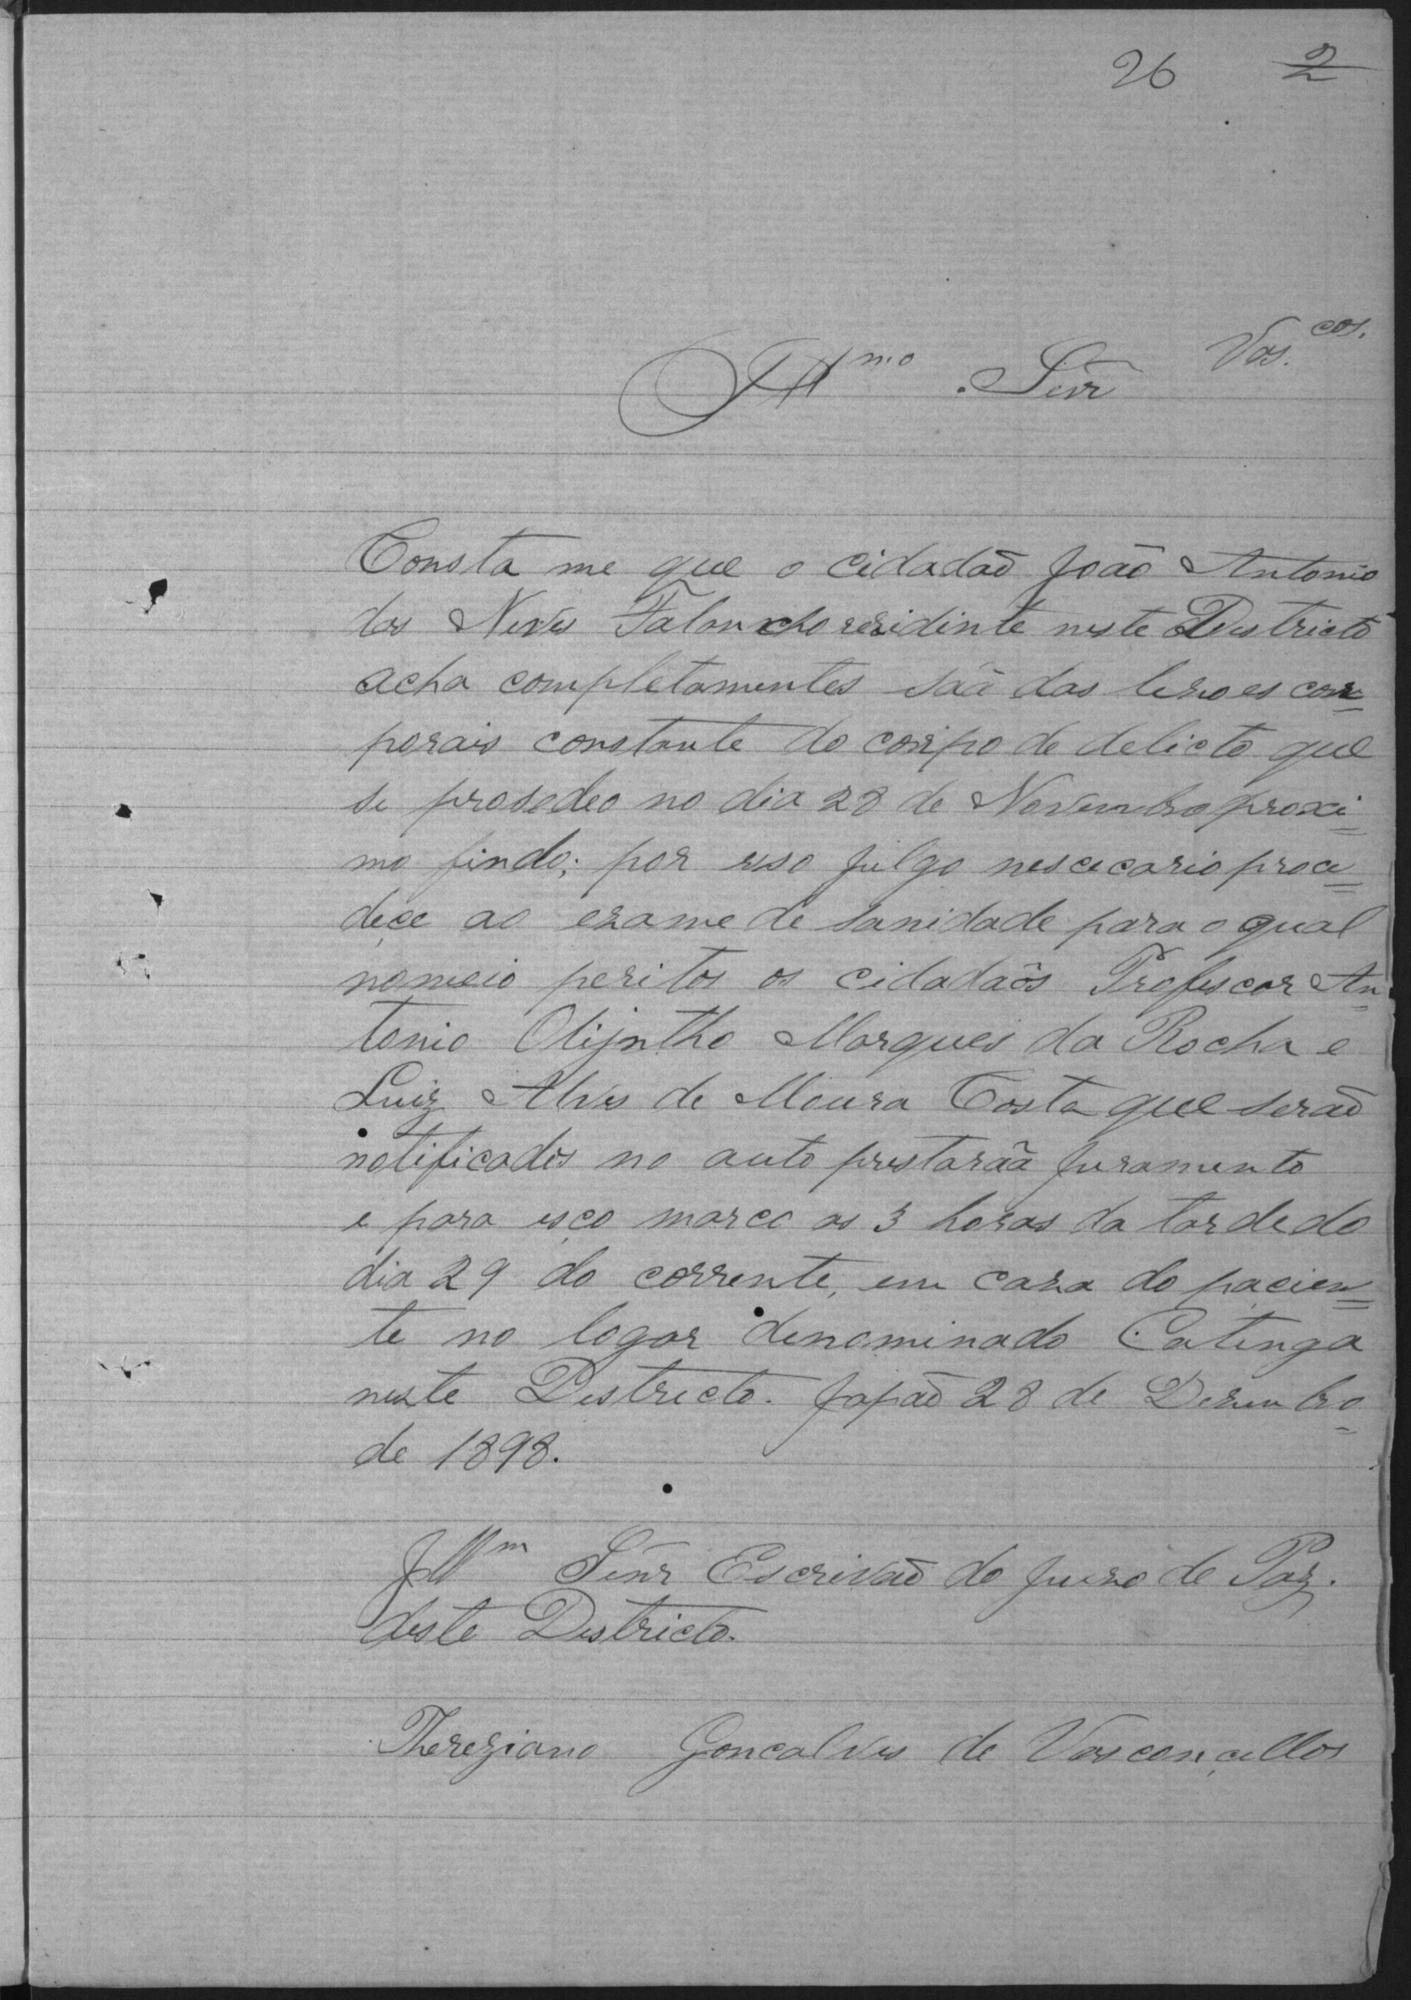 26 2
Vas.cos.
Illmo Senr
Consta me que o cidadaõ João Antonio
das Neves Falancho residinte neste Destricto
acha completamentes sáã das lezoes cor=
porais constante do corpo de delicto que
se prosedeo no dia 28 de Novembro proxi=
mo findo; por isso julgo nescecario proce=
dece ao exame de sanidade para o qual
nomeio peritos os cidadaõs Profescor An=
tonio Olijntho Marques da Rocha e
Luiz Alves de Moura Costa que seraõ
notificados no auto prestarãa juramento
e para esço marco as 3 horas da tarde do
dia 29 do corrente, em caza do pacien=
te no logar denominado Catinga
neste Destricto. Japaõ 28 de Dezembro
de 1898.
Illm Senr Escrivaõ do juizo de Paz.
deste Destricto.
Thereziano Goncalves de Vasconçellos